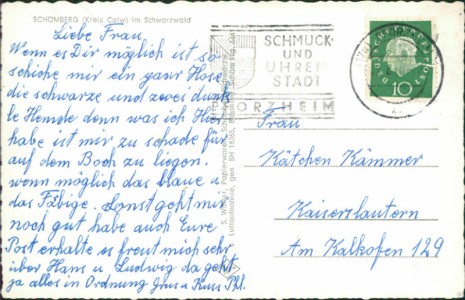 SCHÖMBERG (Kreis Calw) im Schwarzwald
Liebe Frau
Wenn es Dir möglich ist so
schicke mir ein paar Hose
die schwarze und zwei dunk
le Hemde denn was ich hier
habe ist mir zu schade für
auf dem Boch zu liegen.
wenn möglich das blaue u.
das Fäbige. Sonst geht mir
noch gut habe auch Eure
Post erhalte es freut mich sehr
über Hans u Ludwig da geht
ja alles in Ordnung Gruss Kuss Phl.
SCHMUCK-
UND
UHREN
STADT
PFORZHEIM
DEUTSCHE BUNDESPOST
10
Frau
Kätchen Kämmer
Kaiserslautern
Am Kalkofen 129